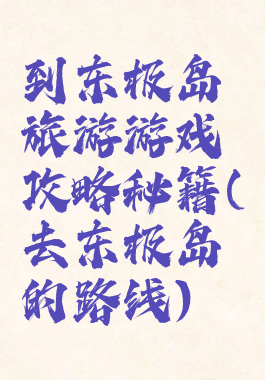 到东极岛
旅游游戏
攻略秘籍(
去东极岛
的路线)